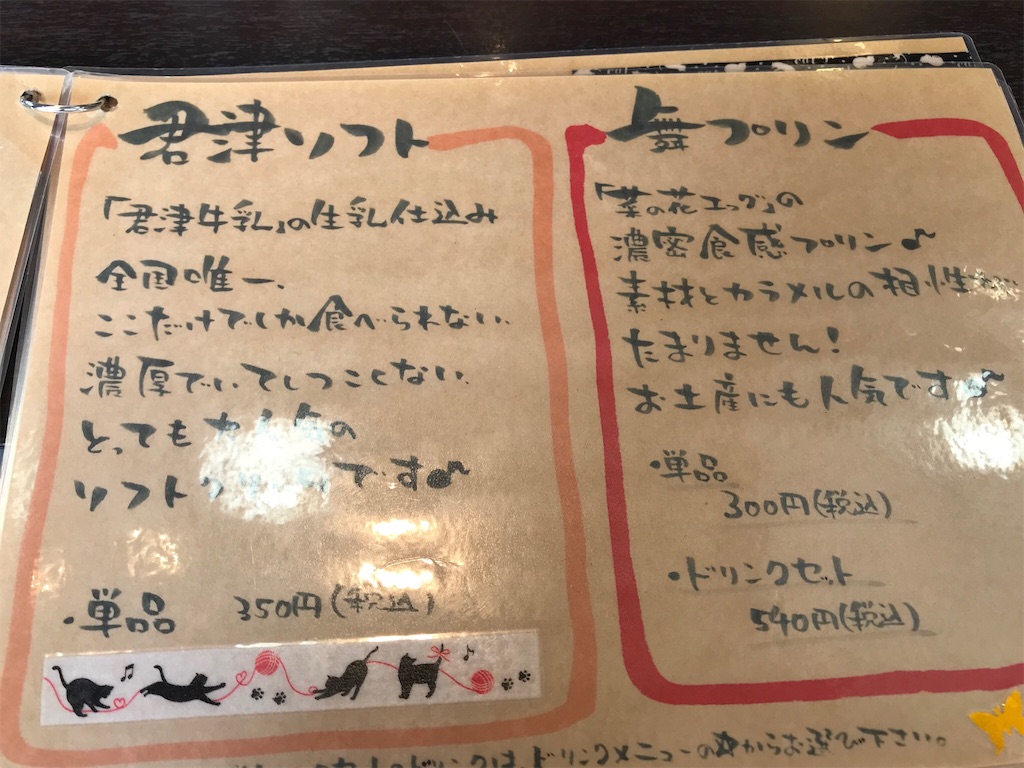 君津ソフト
「君津牛乳」の生乳仕込み
全国唯一、
ここだけでしか食べられない
濃厚でいてしつこくない
とっても の
ソフト です♪
・単品 350円(税込)
舞プリン
「菜の花エッグ」の
濃密食感プリン♪
素材とカラメルの相性が
たまりません!
お土産にも人気です♪
・単品
300円(税込)
・ドリンクセット
540円(税込)
のドリンクは、ドリンクメニューの中からお選び下さい。